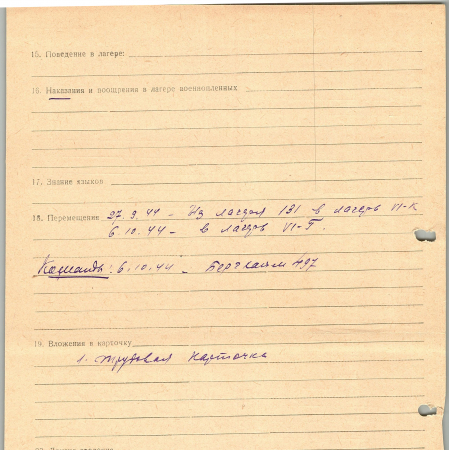 15. Поведение в лагере:
16. Наказания и поощрения в лагере военнопленных
17. Знание языков
18. Перемещение 27.9.44 - Из лагеря 131 в лагерь VI-К
6.10.44 - в лагерь VI-
Команды: 6.10.44 -
19. Вложения в карточку
1. трудовая карточка